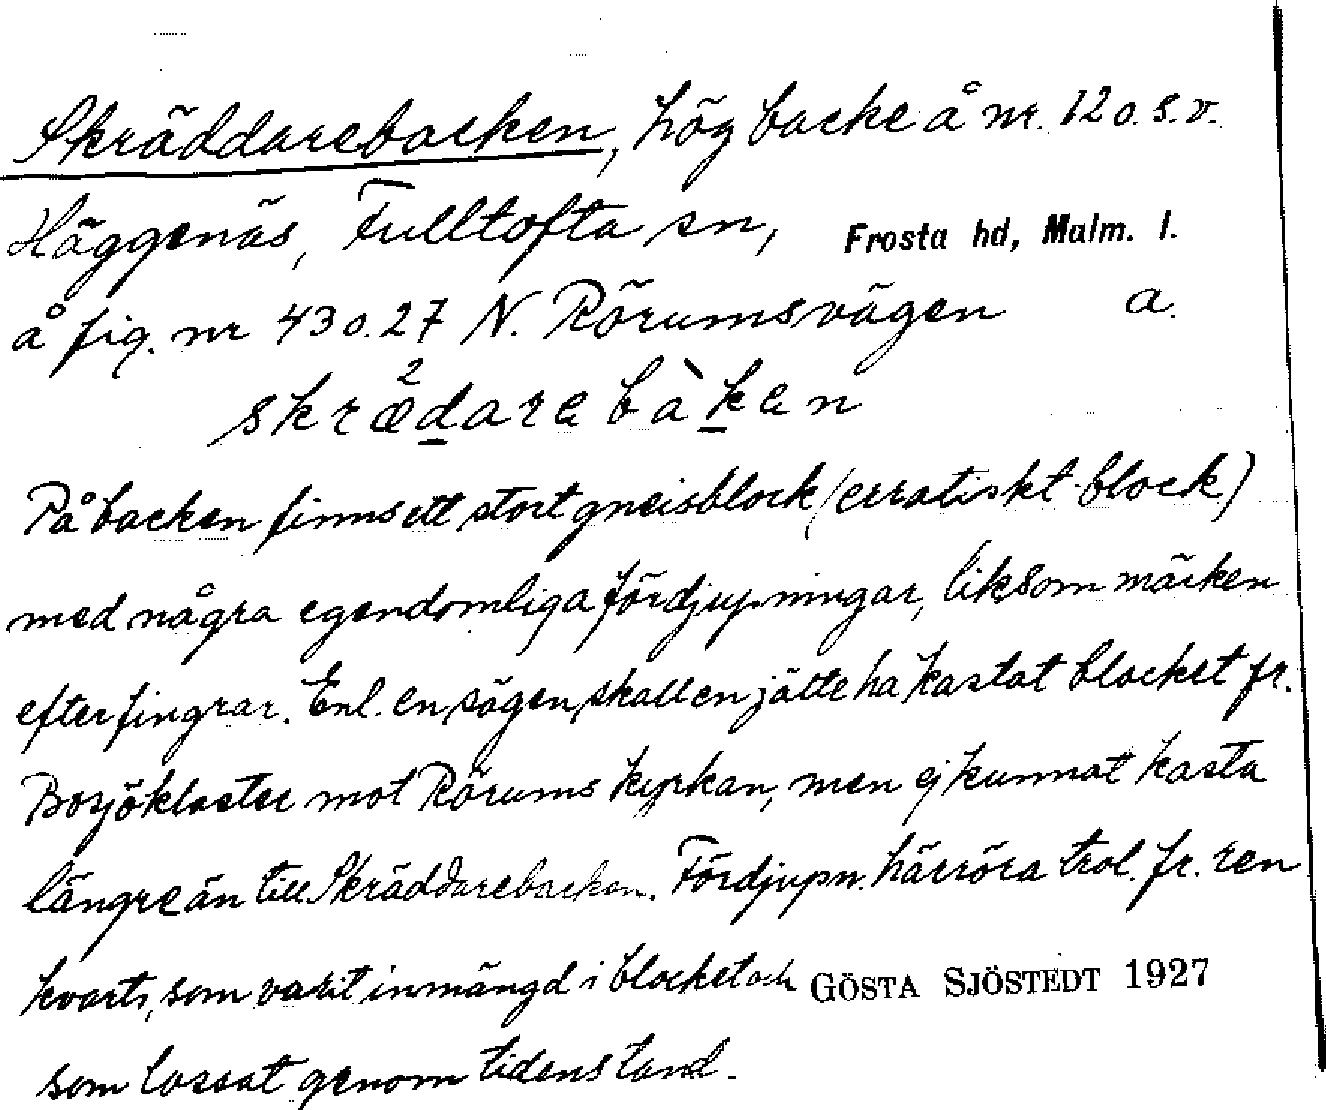 Skräddarebacken, hög backe å nr. 12 o. s. v.
Häggenäs, Fulltofta sn, Frosta hd, Malm. l.
å fig. nr 43 o. 27 N. Rörumsvägen a.
skrædarebàken
På backen finns ett stort gneisblock (erratiskt block)
med några egendomliga fördjupningar, liksom märken
efter fingrar. Enl. en sägen skall en jätte ha kastat blocket fr.
Bosjökloster mot Rörums kyrkan, men ej kunnat kasta
längre än till Skräddarebacken. Fördjupn. härröra trol. fr. ren
kvarts, som varit inmängd i blocket och GÖSTA SJÖSTEDT 1927
som lossat genom tidens tand.